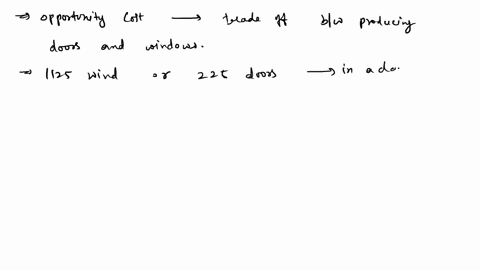 ⇒ opportunity Cost → trade off b/w producing
doors and windows.
⇒ 1125 wind or 225 doors → in a da.